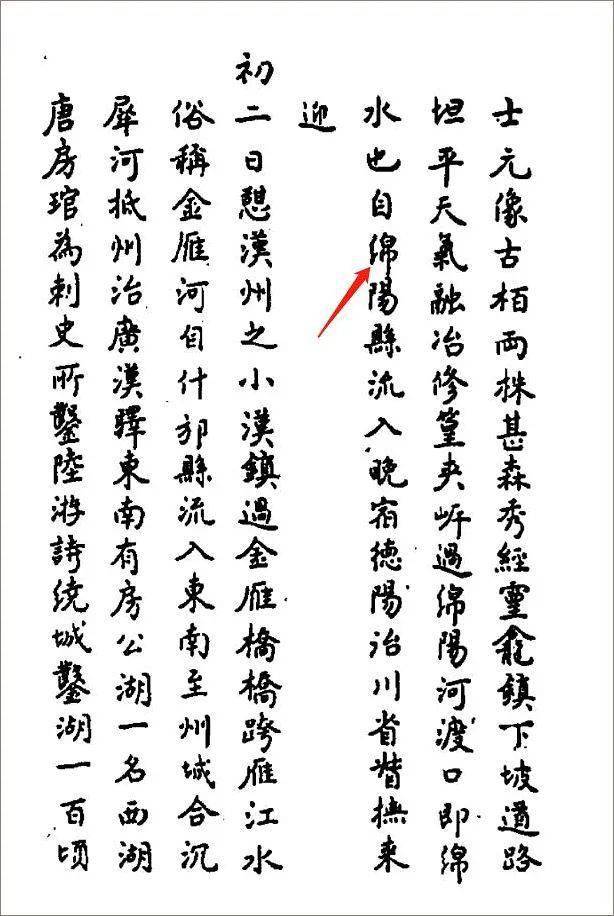 士元像古栢兩株甚森秀經靈龕鎮下坡道路
坦平天氣融冶修篁夾岍過綿陽河渡口即綿
水也自綿陽縣流入晚宿德陽治川省督撫來
迎
初二日憩漢州之小漢鎮過金雁橋橋跨雁江水
俗稱金雁河自什邡縣流入東南至州城合沉
犀河抵州治廣漢驛東南有房公湖一名西湖
唐房琯為刺史所鑿陸游詩繞城鑿湖一百頃